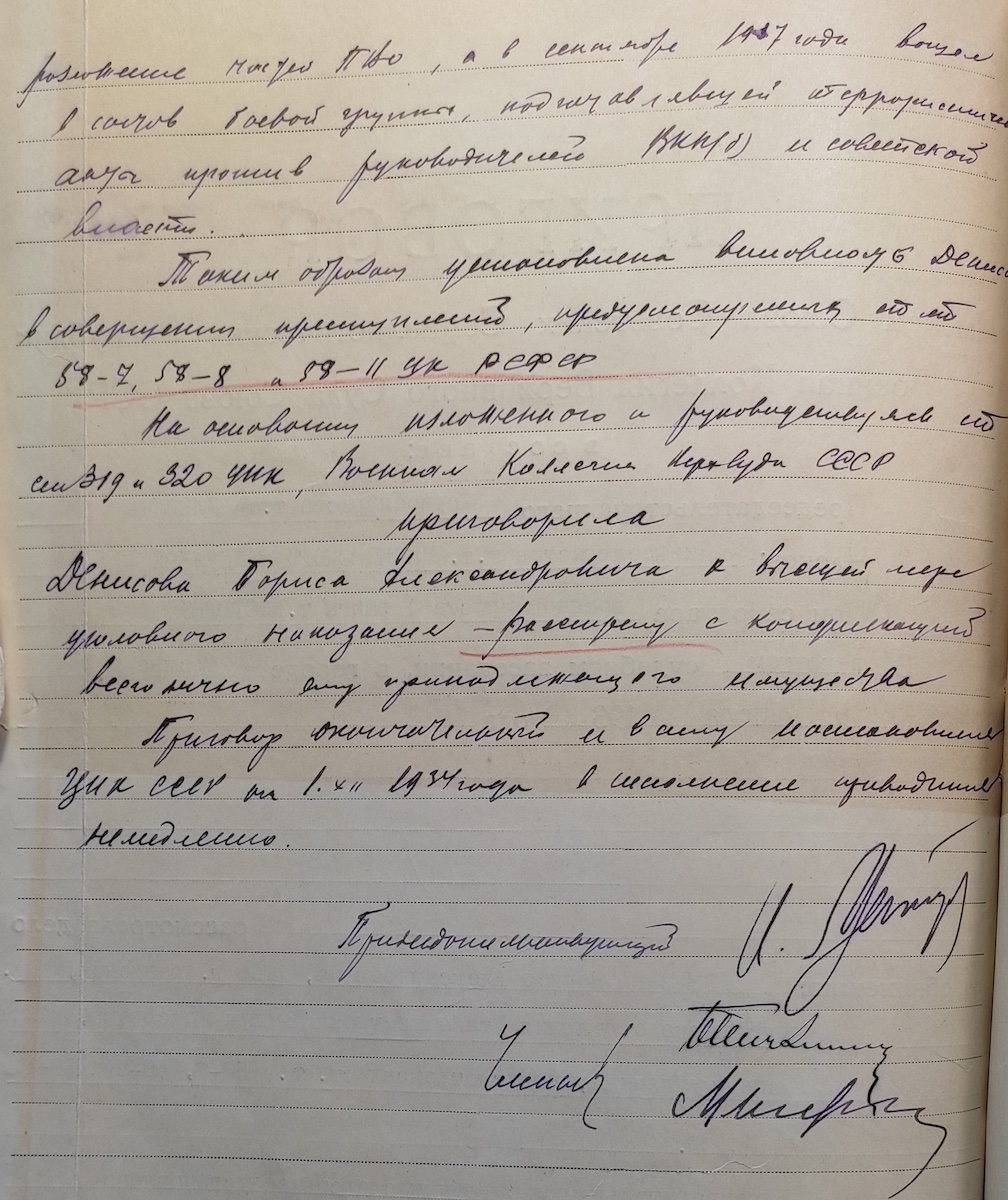 разложение частей ПВО, а в сентябре 1937 года вошел
в состав боевой группы, подготовлявшей террористиче
акты против руководителей ВКП(б) и советской
власти.
Таким образом установлена виновность Денисо
в совершении преступлений, предусмотренных ст ст
58-7, 58-8 и 58-11 УК РСФСР
На основании изложенного и руководствуясь ст
ст 319 и 320 УПК, Военная Коллегия Верхсуда СССР
приговорила
Денисова Бориса Александровича к высшей мере
уголовного наказания – расстрелу с конфискацией
всего лично ему принадлежащего имущества
Приговор окончательный и в силу постановления
ЦИК СССР от 1.XII 1934 года в исполнение приводится
немедленно.
Председательствующий
Члены